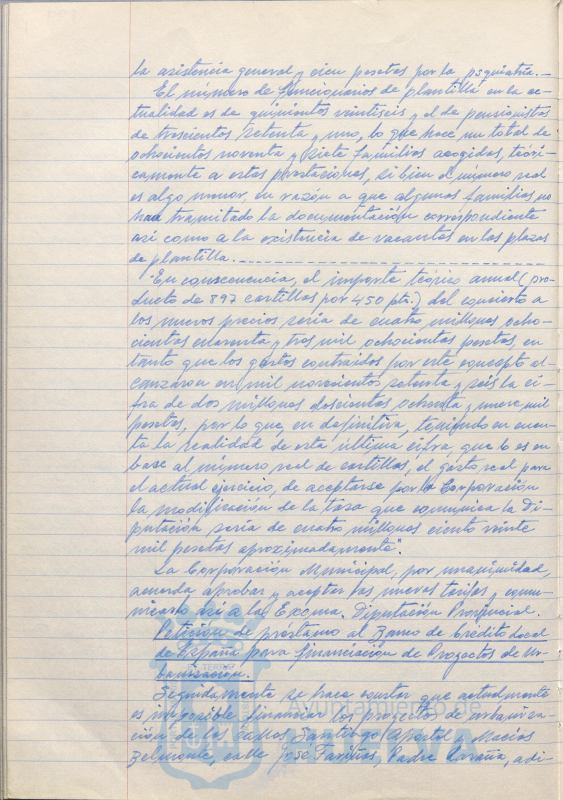 la asistencia general y cien pesetas por la psquiatria.—
El número de funcionarios de plantilla en la ac-
tualidad es de quinientos veintiseis y el de pensionistas
de trescientos setenta y uno, lo que hace un total de
ochocientos noventa y siete familias acogidas, teóri-
camente a estas prestaciones, si bien el número real
es algo menor, en razón a que algunas familias no
han tramitado la documentación correspondiente
asi como a la existencia de vacantes en las plazas
de plantilla.
En consecuencia, el importe teórico anual (pro-
ducto de 897 cartillas por 450 pts.) del concierto a
los nuevos precios sería de cuatro millones ocho-
cientas cuarenta y tres mil ochocientas pesetas, en
tanto que los gastos contraidos por este concepto al-
canzaron en mil novecientos setenta y seis la ci-
fra de dos millones doscientas ochenta y nueve mil
pesetas, por lo que, en definitiva, teniendo en cuen-
ta la realidad de esta última cifra que lo es en
base al número real de cartillas, el gasto real para
el actual ejercicio, de aceptarse por la Corporación
la modificación de la tasa que comunica la Di-
putación sería de cuatro millones ciento veinte
mil pesetas aproximadamente".
La Corporación Municipal, por unanimidad,
acuerda aprobar y aceptar las nuevas tarifas y comu-
nicarlo asi a la Excma. Diputación Provincial.
Petición de préstamo al Banco de Crédito Local
de España para financiación de Proyectos de Ur-
banización.
Seguidamente se hace constar que actualmente
es imposible financiar los proyectos de urbaniza-
ción de las calles Santiago Apostol y Macias
Belmonte, calle José Fariñas, Padre Laraña, adi-
Ayuntamiento de
HUELVA